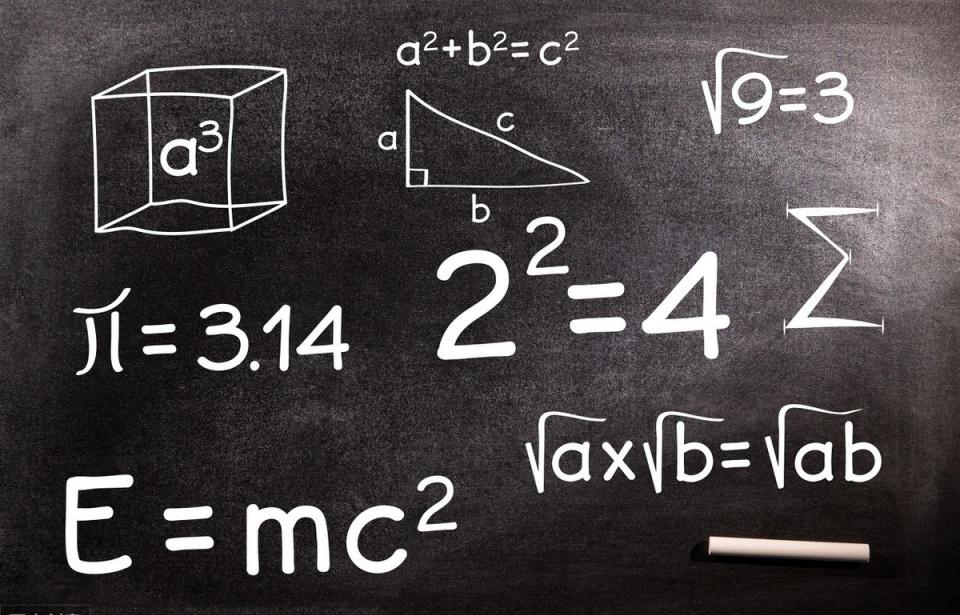 a²+b²=c²
√9=3
a³
a
c
b
2²=4
Σ
π=3.14
√a×√b=√ab
E=mc²